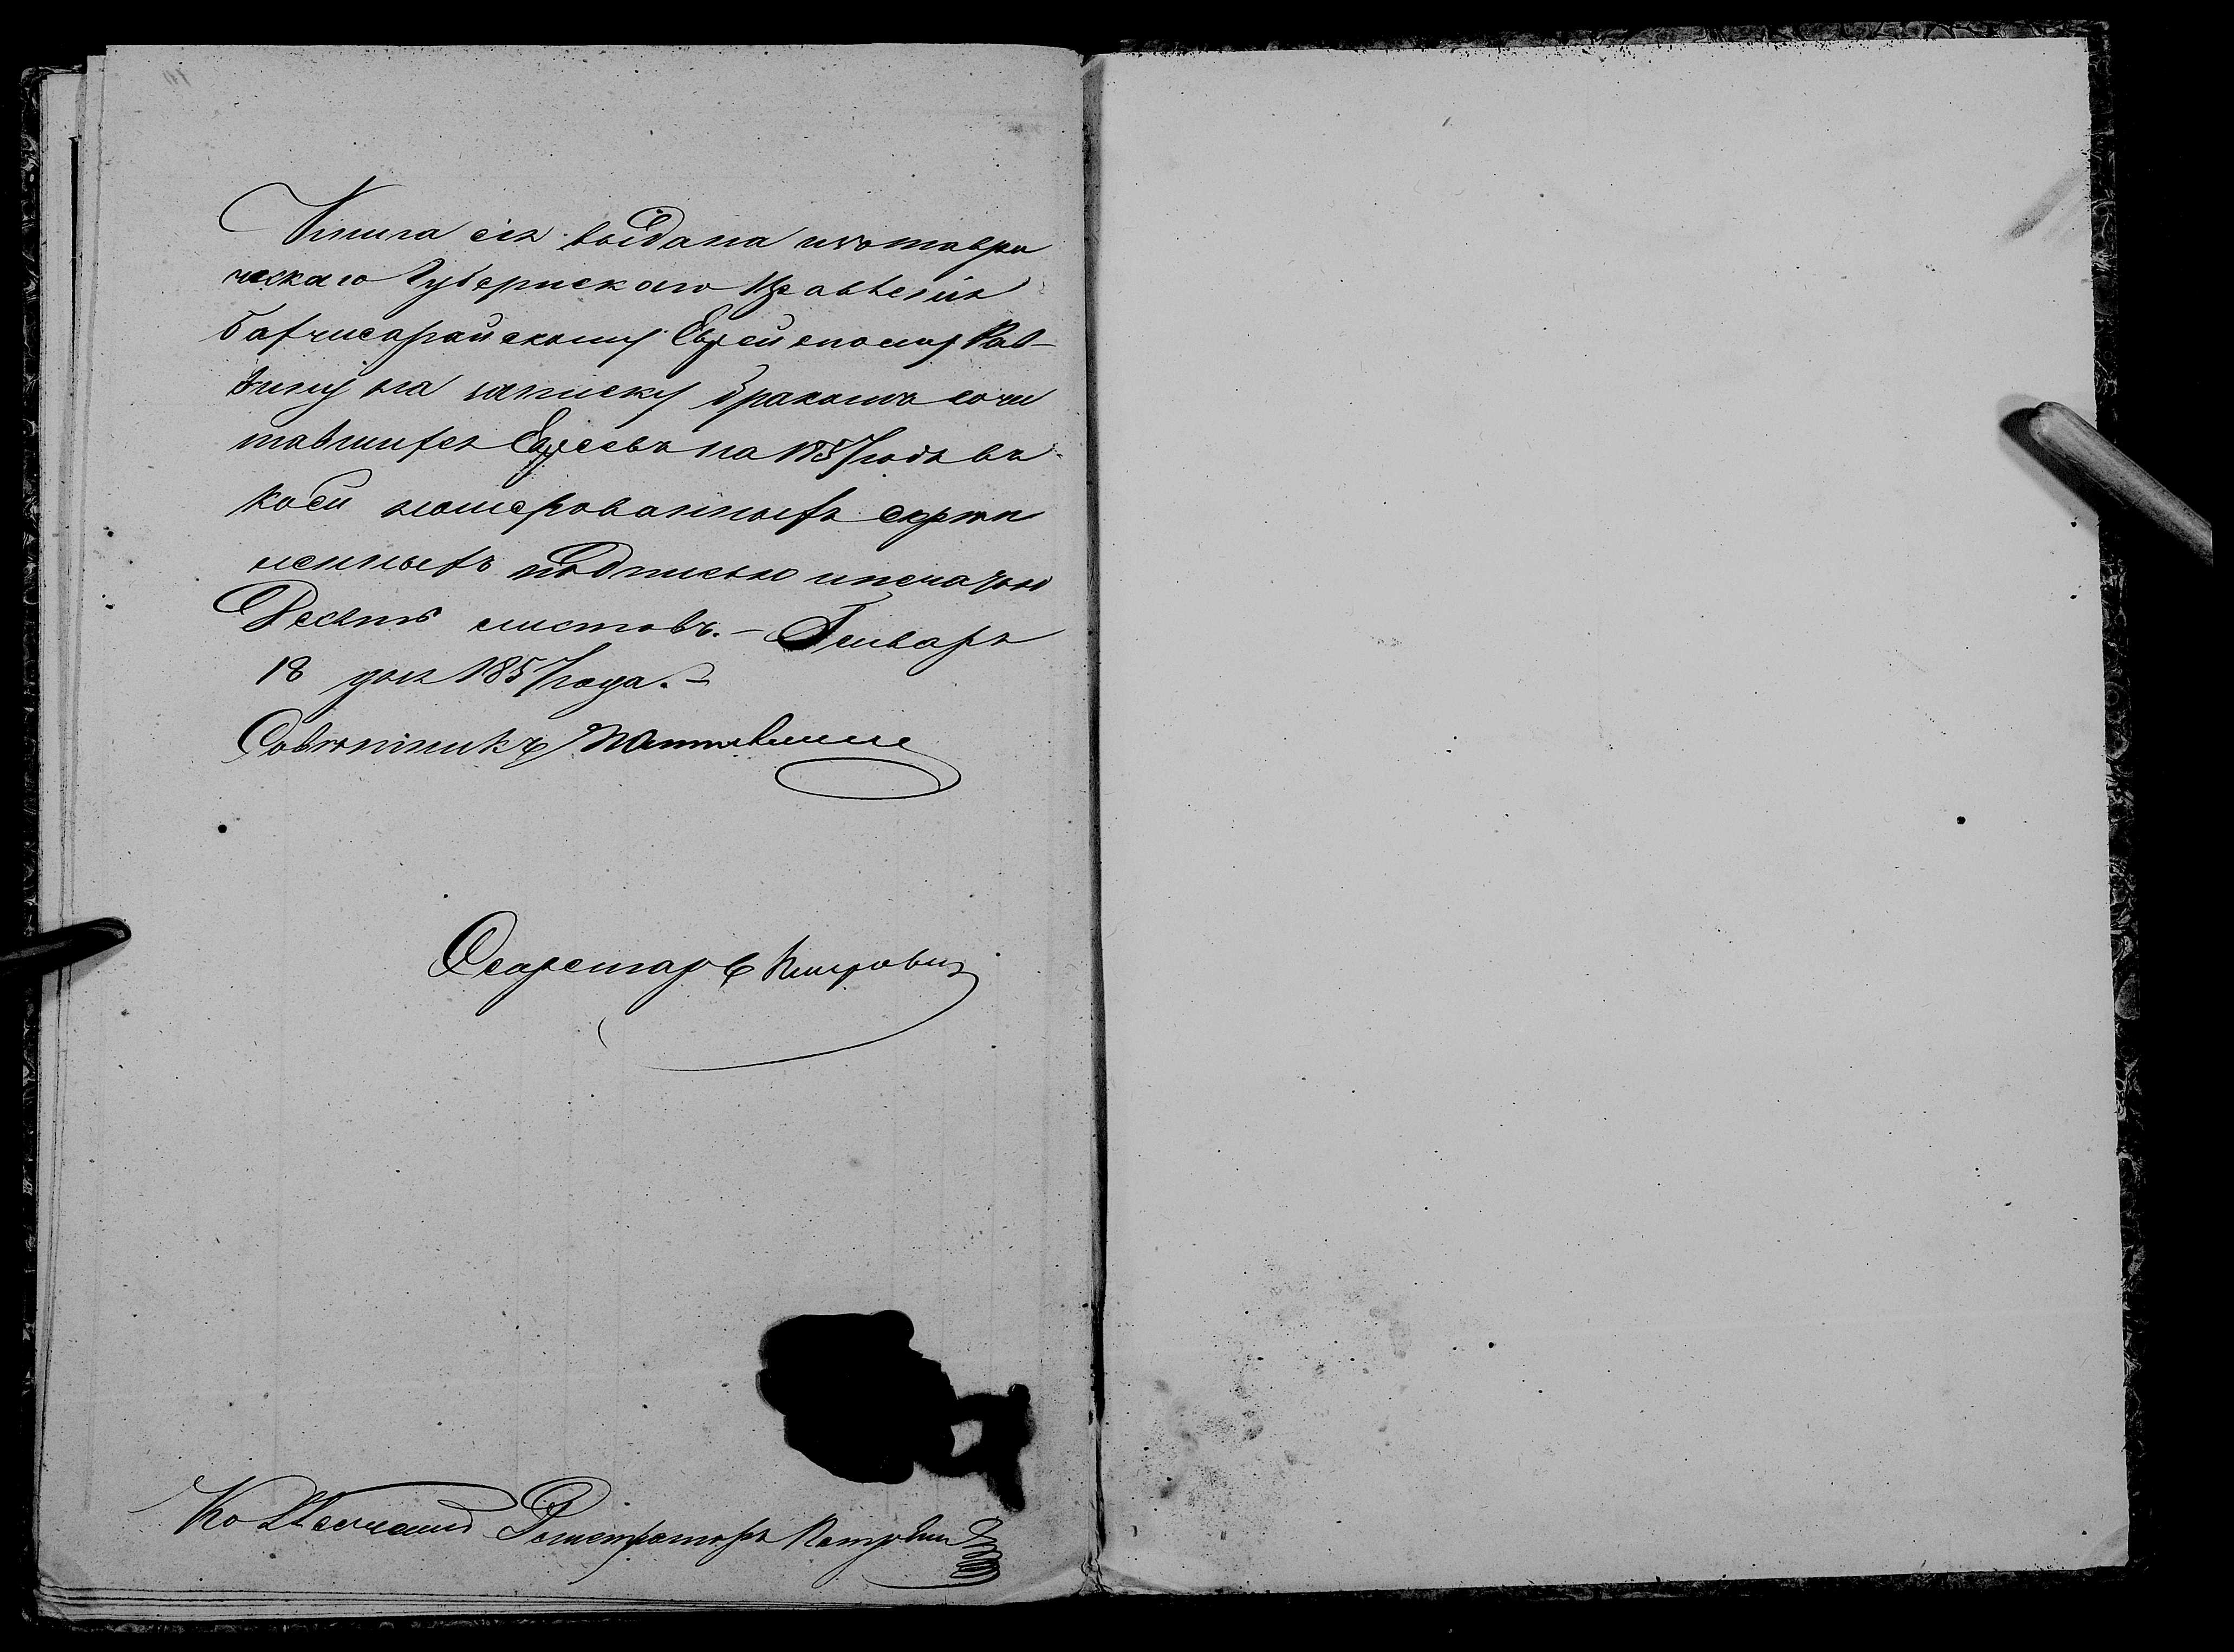 Книга сія выдана изъ Таври
ческаго Губернскаго Правленія
Бахчисарайскому Еврейскому Рав-
вину на записку бракомъ соче
тавшихся Евреевъ на 1857 годъ въ
коей номерованныхъ скрѣп
ленныхъ подписью и печатью
Десять листовъ. – Генваря
18 дня 1857 года. –
Совѣтникъ
Секретарь
Коллежскій Регистраторъ Петровъ